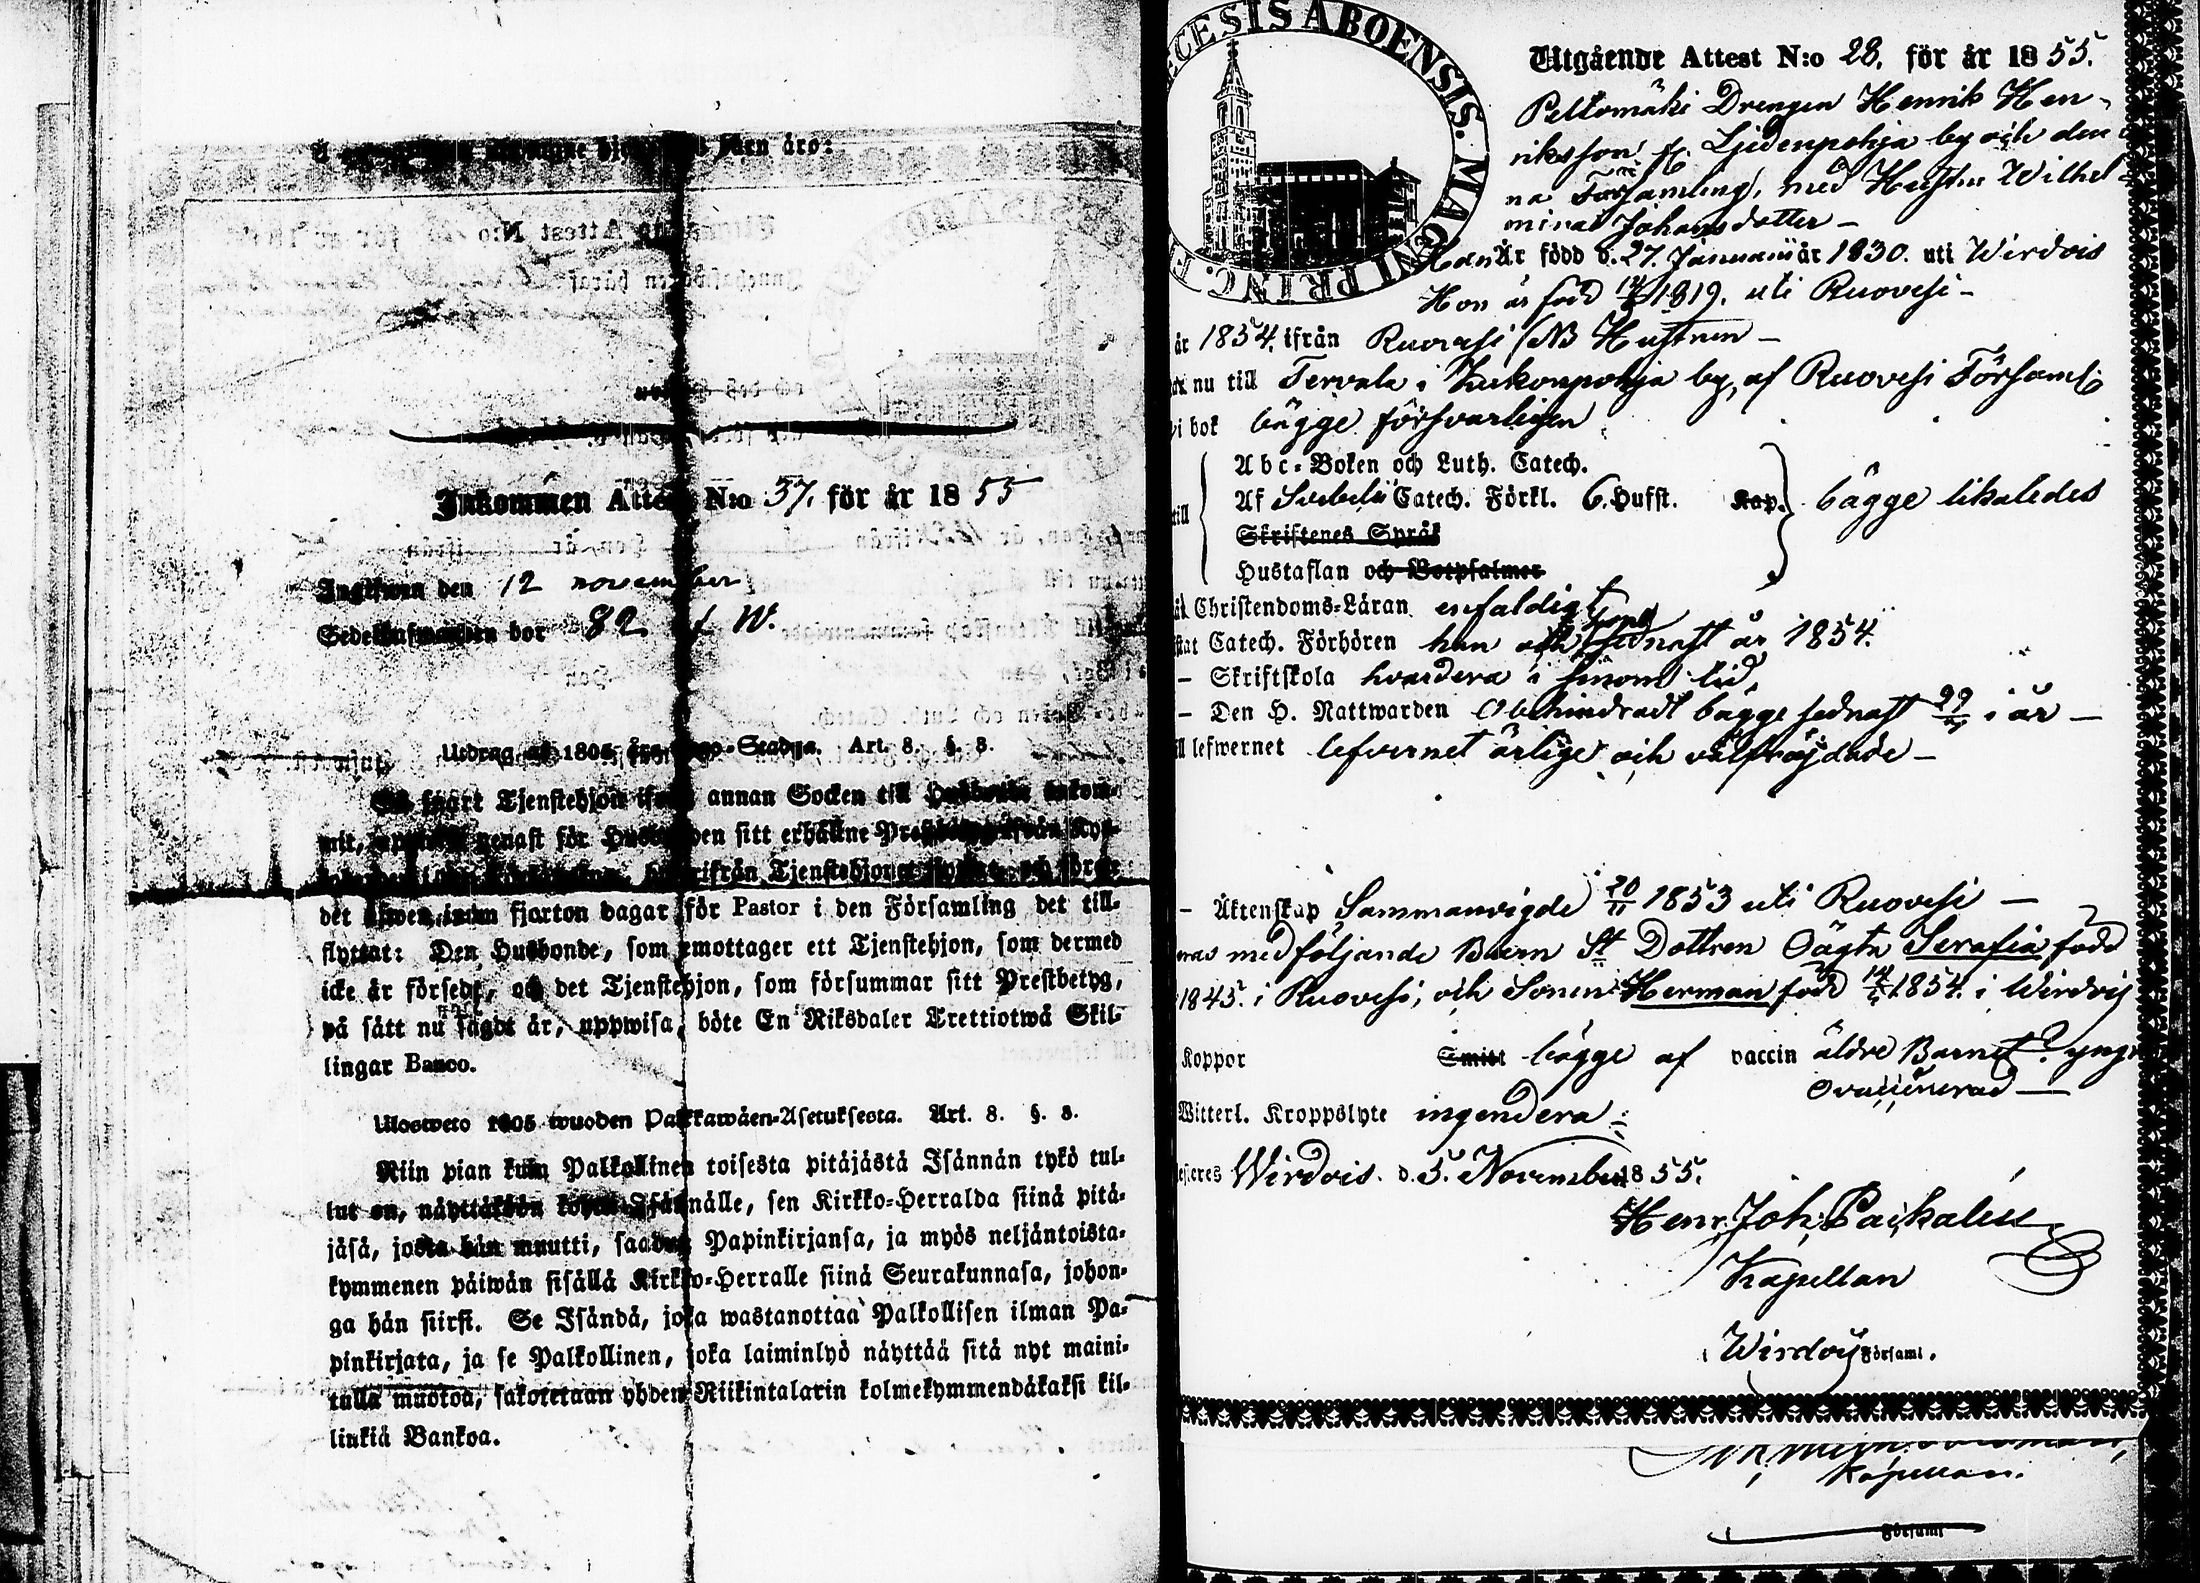 Inkommen Attest N:o 37. för år 1855
Ingifwen den 12 november
82
Utdrag af 1805 års Lego-Stadga. Art. 8. §. 3.
Så snart Tjenstehjon ifrån annan Socken till Husbonde inkom-
mit, genast för Husbonden sitt erhållne
ifrån Tjenstehjonet
det äfwen inom fjorton dagar för Pastor i den Församling det till-
flyttat: Den Husbonde, som emottager ett Tjenstehjon, som dermed
icke är försedt, och det Tjenstehjon, som försummar sitt Prestbetyg,
på sätt nu sagdt är, uppwisa, böte En Riksdaler Trettiotwå Skil-
lingar Banco.
Ulosweto 1805 wuoden Palkkawäen-Asetuksesta. Art. 8. §. 3.
Niin pian kuin Palkollinen toisesta pitäjästä Isännän tykö tul-
lut on, näyttäkään Isännälle, sen Kirkko-Herralda siinä pitä-
jäsä, josta hän muutti, saadun Papinkirjansa, ja myös neljäntoista-
kymmenen päiwän sisällä Kirkko-Herralle siinä Seurakunnasa, johon-
ga hän siirsi. Se Isändä, joka wastanottaa Palkollisen ilman Pa-
pinkirjata, ja se Palkollinen, joka laiminlyö näyttää sitä nyt maini-
tulla muotoa, sakotetaan yhden Riikintalarin kolmekymmendäkaksi kil-
linkiä Bankoa.
ECESIS ABOENSIS. MAGNI PRINC. F
Utgående Attest N:o 28. för år 1855.
Peltomäki Drengen Henrik Hen-
riksson fr. Ljedenpohja by och den-
na Församling, med Hustru Wilhel-
mina Johansdotter –
Han Är född d. 27. Januarii år 1830. uti Wirdois
Hon är född 1819. uti Ruovesi –
år 1854. ifrån Ruovesi (NB Hustrun –
nu till Tervala i Kukonpohja by, af Ruovesi Församl.
i bok bägge försvarligen
Abc-Boken och Luth. Catech.
till Af Svebelii Catech. Förkl. 6. Hufst. Kap. bägge likaledes
Skriftenes Språk
Hustaflan och Botpsalmer
Christendoms-Läran enfaldigt
Catech. Förhören han och hon sednast år 1854.
– Skriftskola hvardera i sinom tid,
– Den H. Nattwarden Obehindradt bägge sednast i år –
lefwernet lefvernet ärlige och välfrägdade –
– Äktenskap Sammanvigde 20/11 1853 uti Ruovesi –
med följande Barn St Dottren Oägta Serafia född
1845. i Ruovesi, och Sonen Herman född 1854. i Wirdois
Koppor Smitt bägge af vaccin äldre Barnet? yngre
Ovaccinerad –
Witterl. Kroppslyte ingendera
Wirdois. d. 5. November 1855.
Henr. Joh. Paschalin
Kapellan
i Wirdois Församl.
Kapellan.
Församl